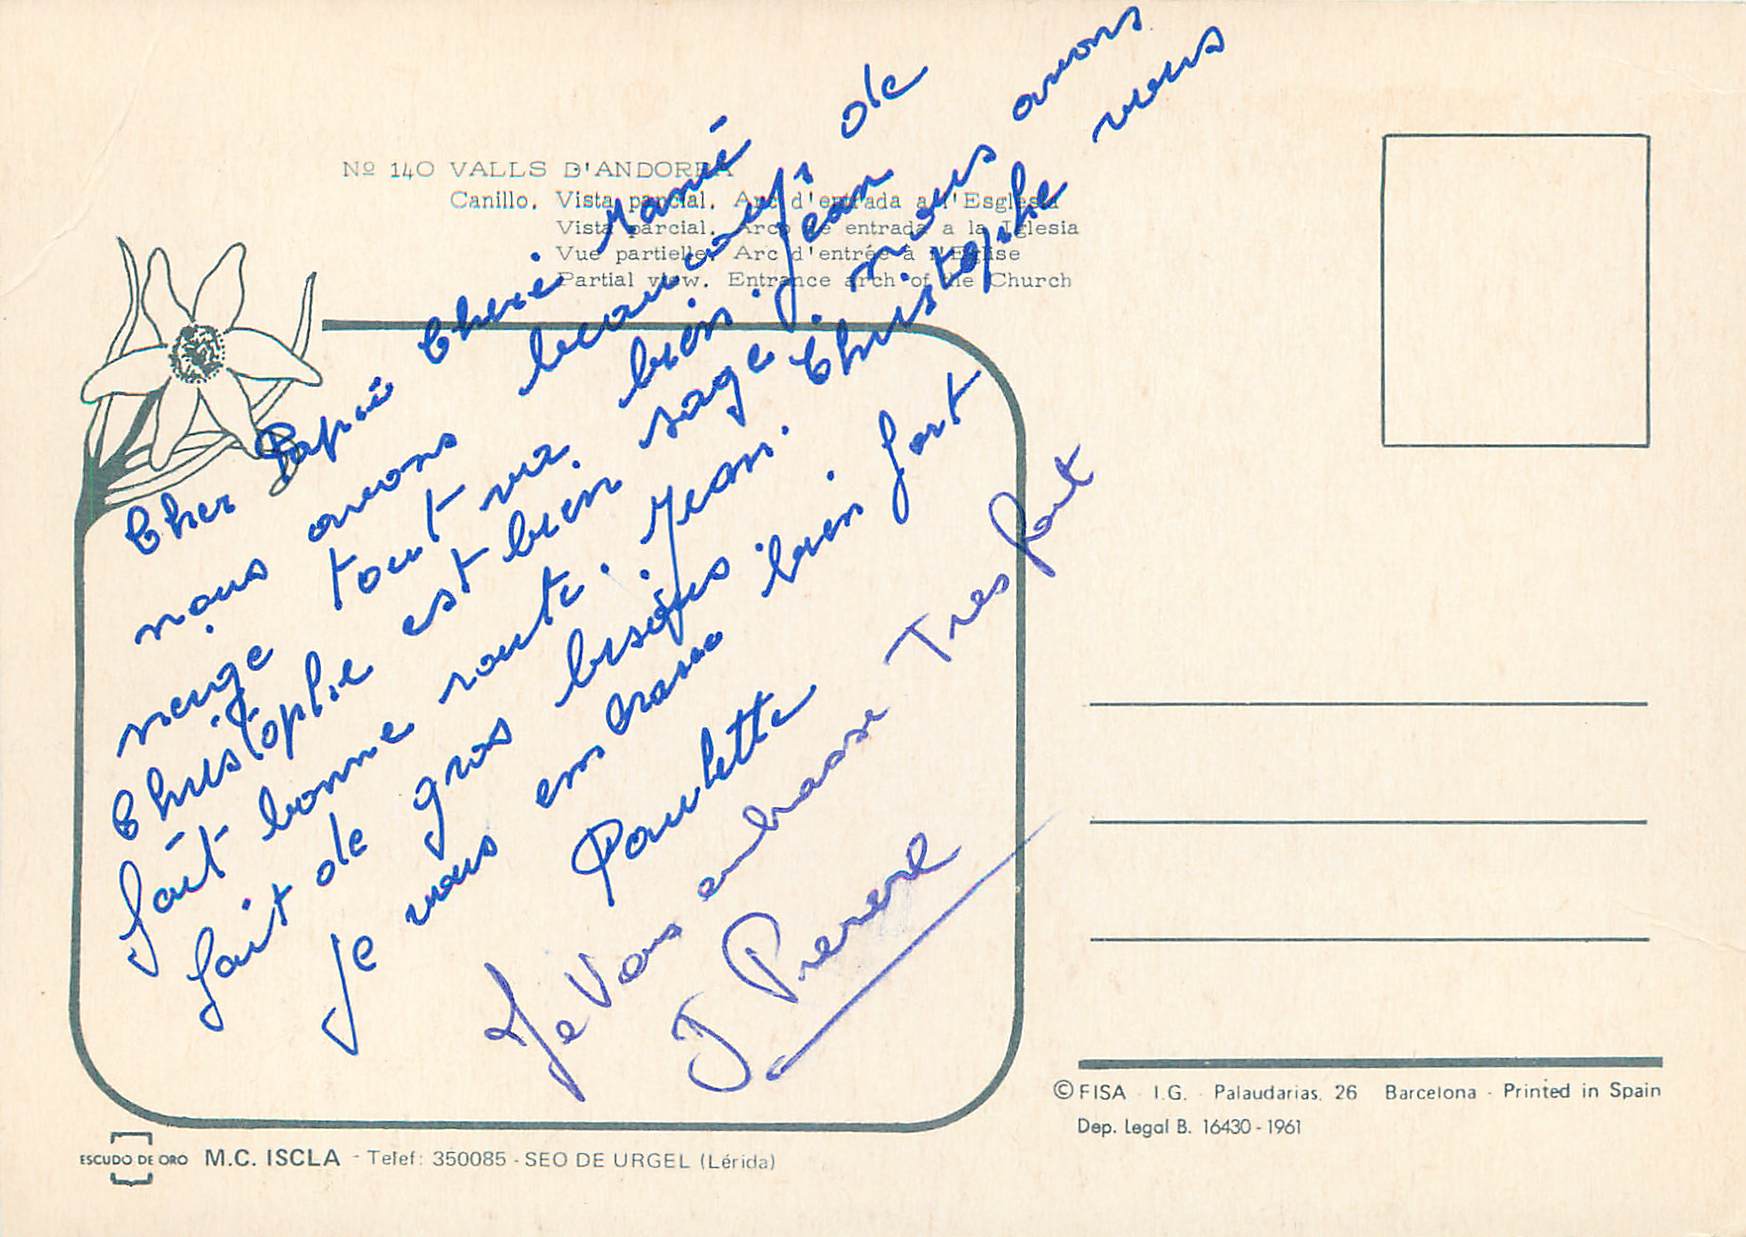 Nº 140 VALLS D'ANDORRA
Canillo. Vista parcial. Arc d'entrada a l'Esglesia
Vista parcial. Arco de entrada a la Iglesia
Vue partielle. Arc d'entrée à l'Eglise
Partial view. Entrance arch of the Church
Cher Papié Cheré Mamé
nous avons beaucoup de
neige tout va bien. Jean
Christophe est bien sage. nous avons
fait bonne route. Jean. Christophe vous
fait de gros bisous
Je vous embrasse bien fort
Paulette
Je Vous embrasse Tres fort
J Pierre
© FISA - I.G. - Palaudarias, 26 Barcelona - Printed in Spain
Dep. Legal B. 16430 - 1961
ESCUDO DE ORO M.C. ISCLA - Telef: 350085 - SEO DE URGEL (Lérida)